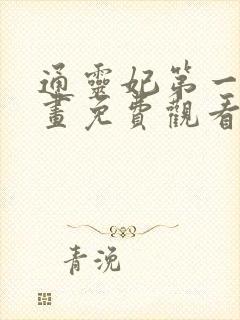 通靈妃第一
畫免費觀看
青浼